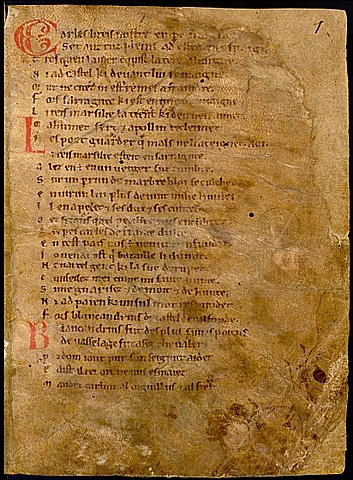 Carles li reis nostre emper
Set anz tuz pleins ad estet en espaigne
Tresquen la mer cunquist la tere altaigne
N i ad castel ki devant lui remaigne
Mur ne citet ni est remes a fraindre
Fors sarraguce ki est en une muntaigne
Li reis marsilie la tient ki deu nen aimet
Mahumet sert e apollin recleimet
Nes poet guarder que mals ne li ateignet aoi
Li reis marsilie esteit en sarraguce
Alez en est en un verger suz lumbre
Sur un perrun de marbre bloi se culched
Envirun lui plus de vint milie humes
Il en apelet e ses dux e ses cuntes
Oez seignurs quel pecchet nus encumbret
Li emper carles de france dulce
En cest pais nos est venuz cunfundre
Jo nen ai ost qui bataille li dunne
Nen ai tel gent ki la sue derumpet
Cunseilez mei cume mi savie hume
Si me guarisez e de mort e de hunte
N i ad paien ki un sul mot respundet
Fors blancandrins de castel de valfunde
Blancandrins fut des plus saives paiens
De vasselage fut asez chevaler
Prozdom i out pur sun seignur aider
E dist al rei or ne vus esmaiez
Mandez carlun al orguillus e al fier